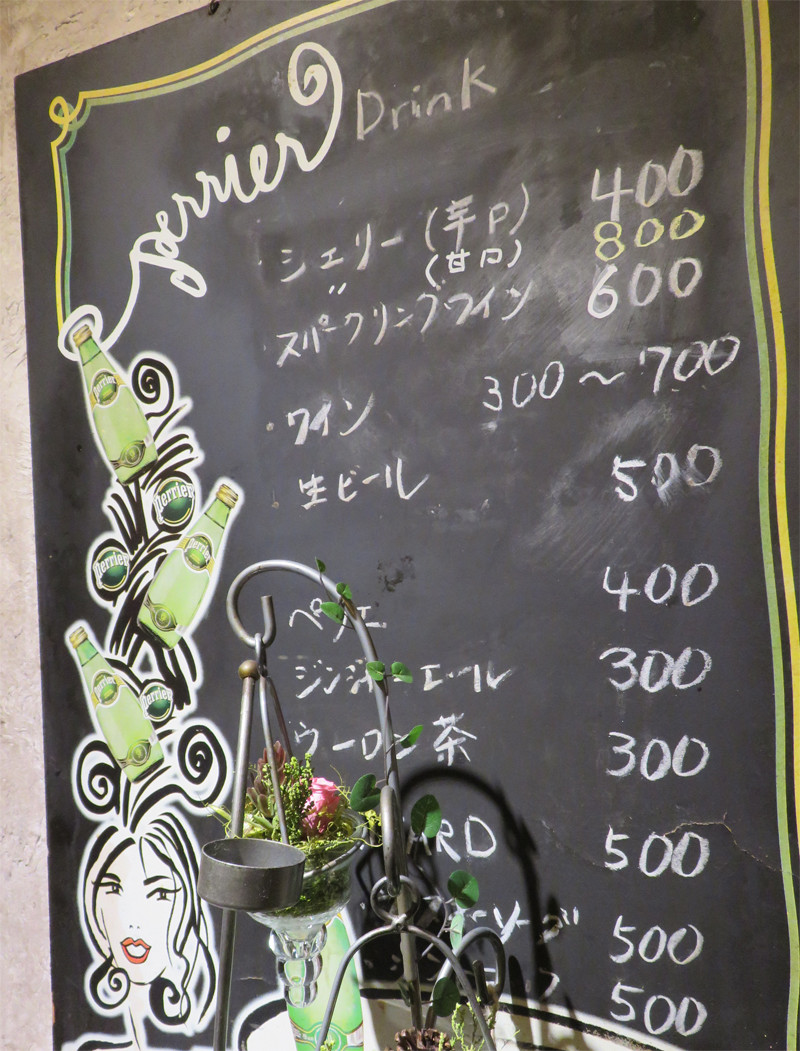 perrier Drink
・シェリー(辛口) 400
〃 (甘口) 800
スパークリングワイン 600
・ワイン 300～700
生ビール 500
ペリエ 400
ジンジャーエール 300
ウーロン茶 300
ARD 500
500
500
Perrier
Perrier
Perrier
Perrier
Perrier
Perrier